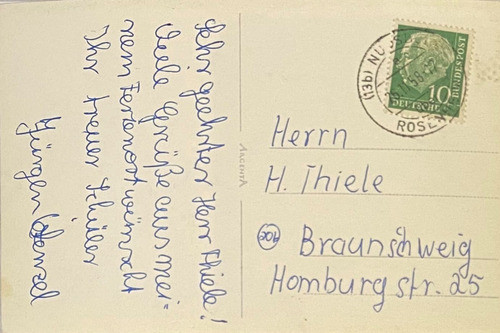 Sehr geehrter Herr Thiele!
Viele Grüße aus mei-
nem Ferienort wünscht
Ihr treuer Schüler
Jürgen Wenzel
MAGENTA
10
DEUTSCHE
BUNDESPOST
(13b) NUSS
58-12
ROSEN
Herrn
H. Thiele
20c Braunschweig
Homburgstr. 25